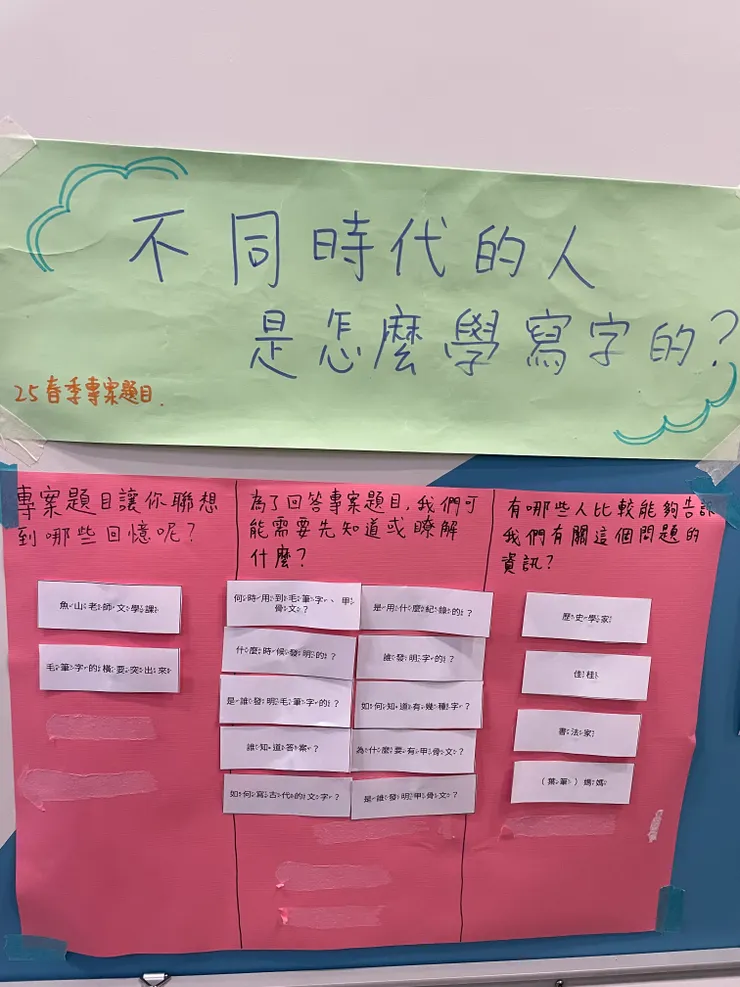 不同時代的人
是怎麼學寫字的?
25春季專案題目.
專案題目讓你聯想
到哪些回憶呢?
魚山老師文學課
毛筆字的橫要突出來
為了回答專案題目,我們可
能需要先知道或瞭解
什麼?
何時用到毛筆字、甲
骨文?
是用什麼紀錄的?
什麼時候發明的?
誰發明字的?
是誰發明毛筆字的?
如何知道有幾種字?
誰知道答案?
為什麼要有甲骨文?
如何寫古代的文字?
是誰發明甲骨文?
有哪些人比較能夠告訴
我們有關這個問題的
資訊?
歷史學家
佳桂
書法家
(葉筆)媽媽